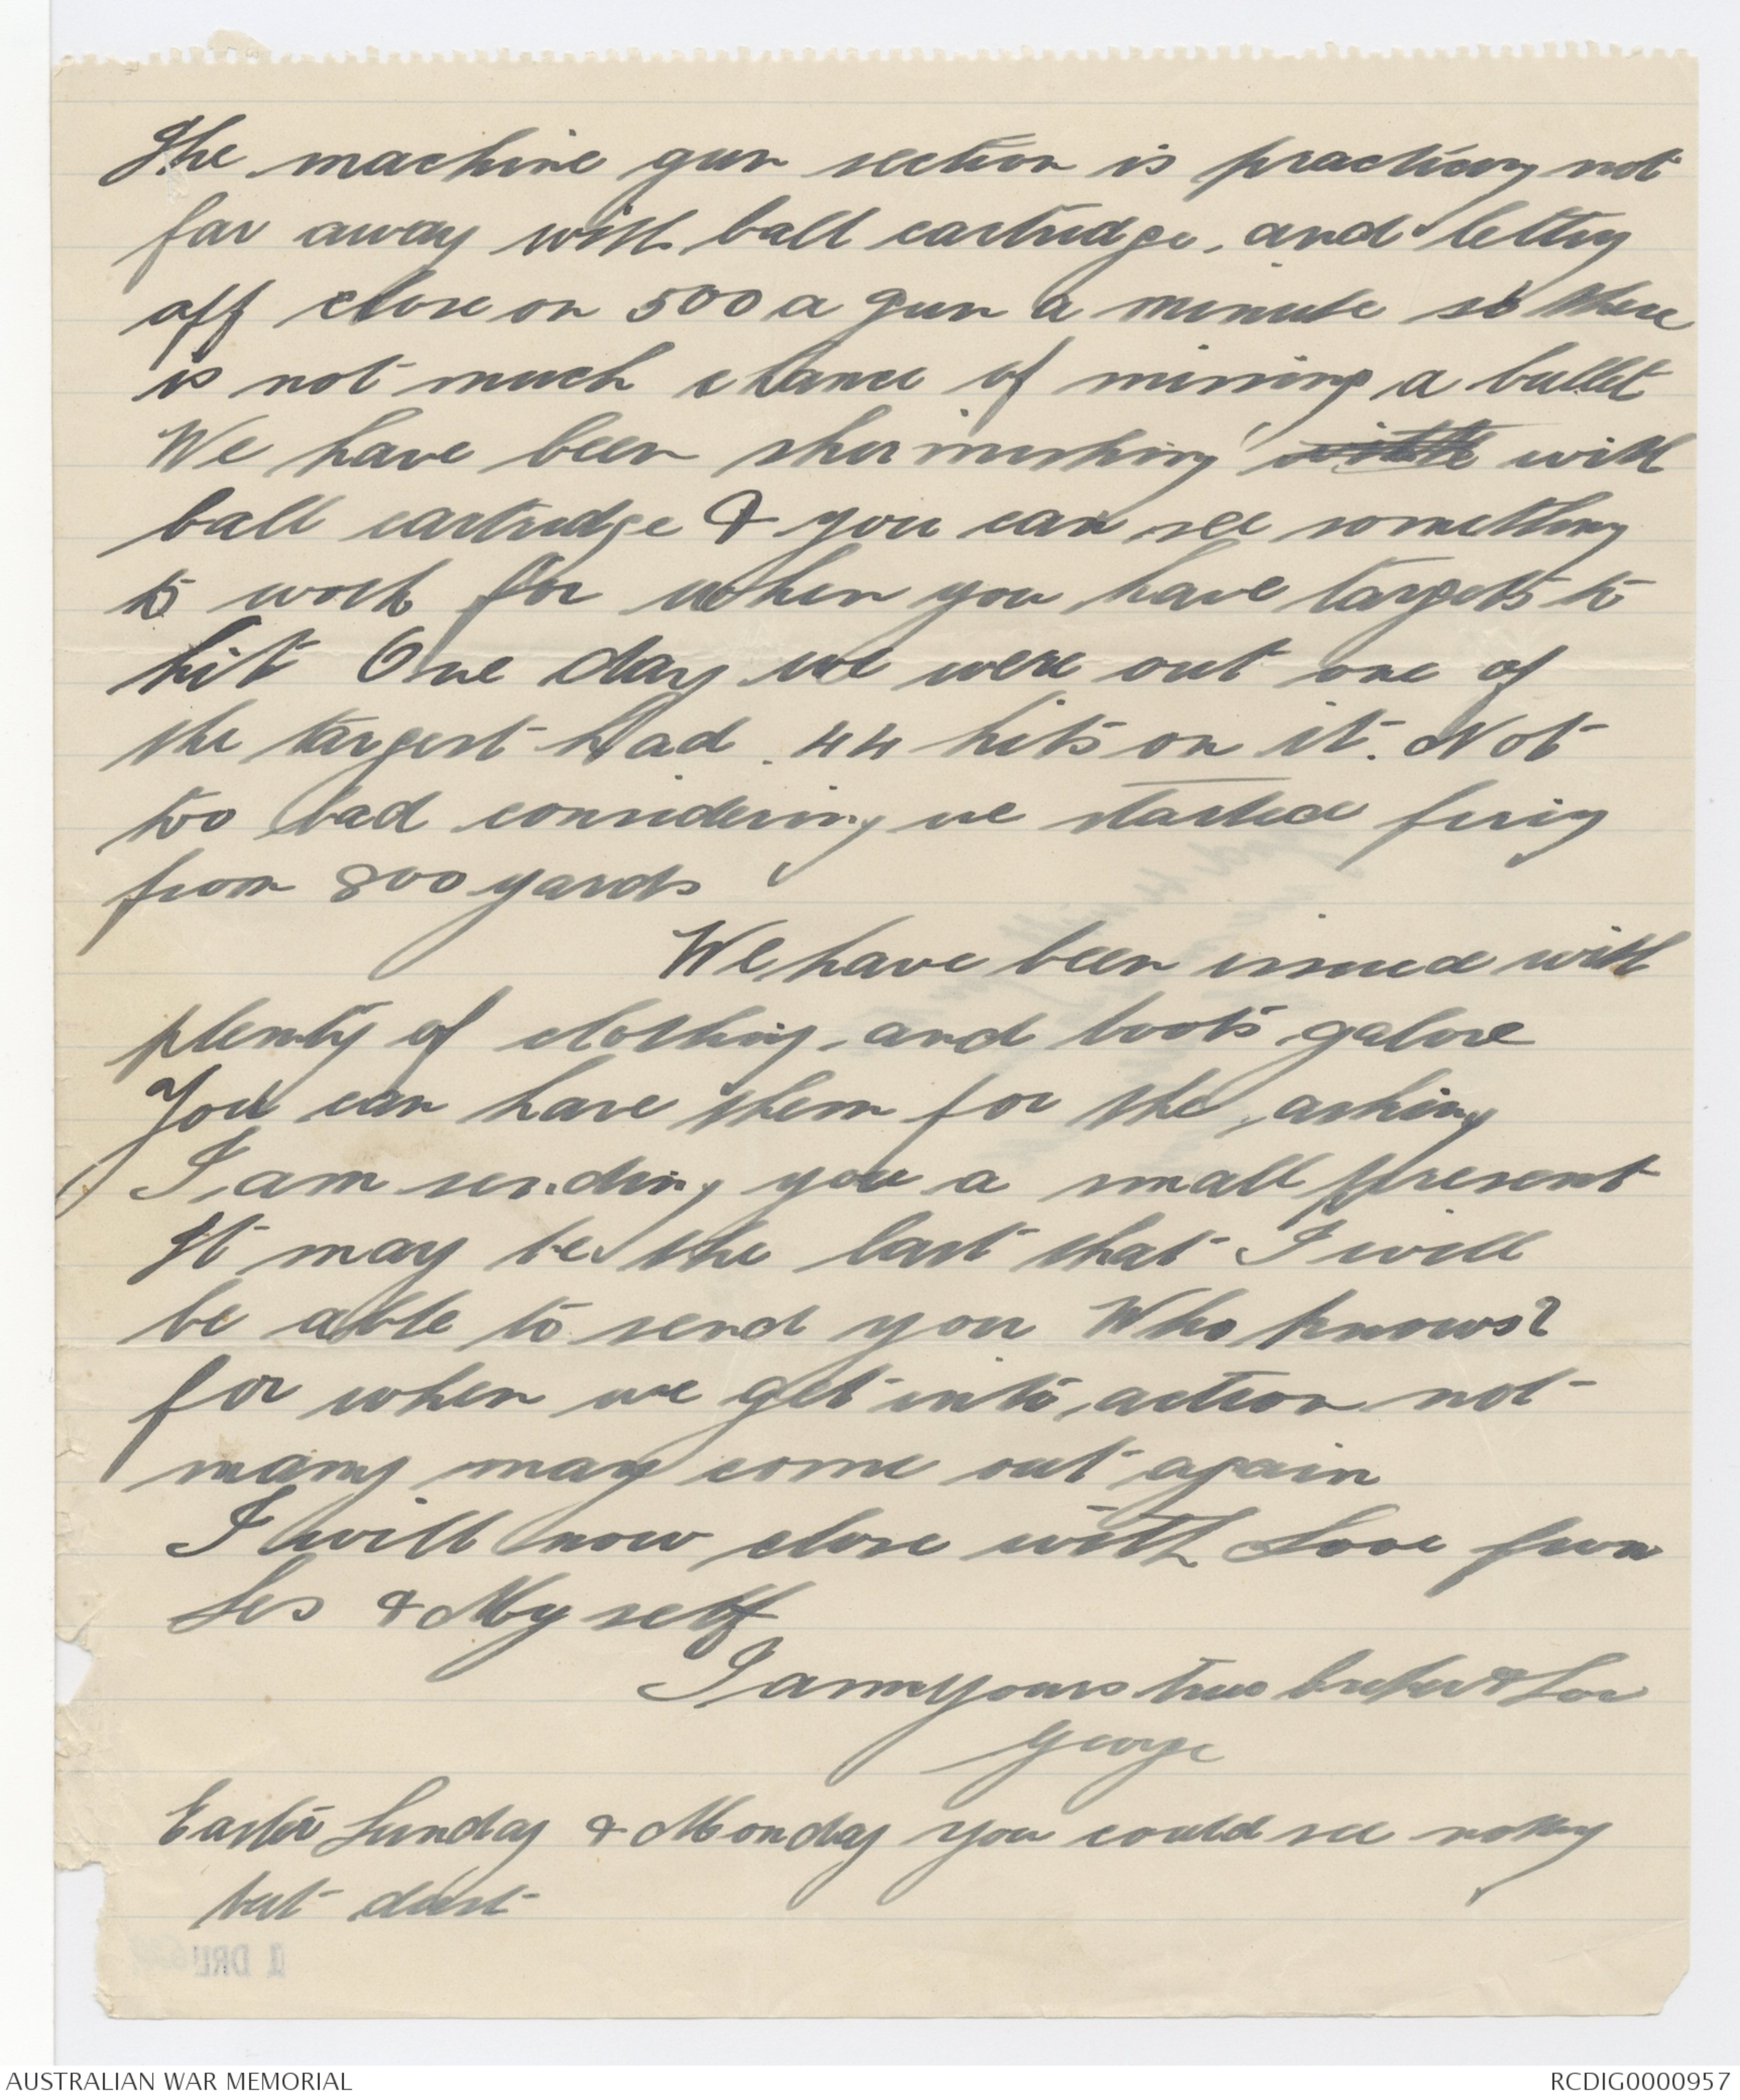 The machine gun section is practicing not
far away with ball cartridge, and letting
off close on 500 a gun a minute so there
is not much chance of missing a bullet
We have been skirmishing with with
ball cartridge & you can see something
to work for when you have targets to
hit One day we were out one of
the targest had 44 hits on it. Not
too bad considering we started firing
from 800 yards
We have been issued with
plenty of clothing, and boots galore
You can have them for the asking
I am sending you a small present
It may be the last that I will
be able to send you Who knows?
for when we get into action not
many may come out again
I will now close with Love from
Les & My self
I am yours true brother & Son
George
Easter Sunday & Monday you could see nothing
but dust
1 DRL
AUSTRALIAN WAR MEMORIAL
RCDIG0000957